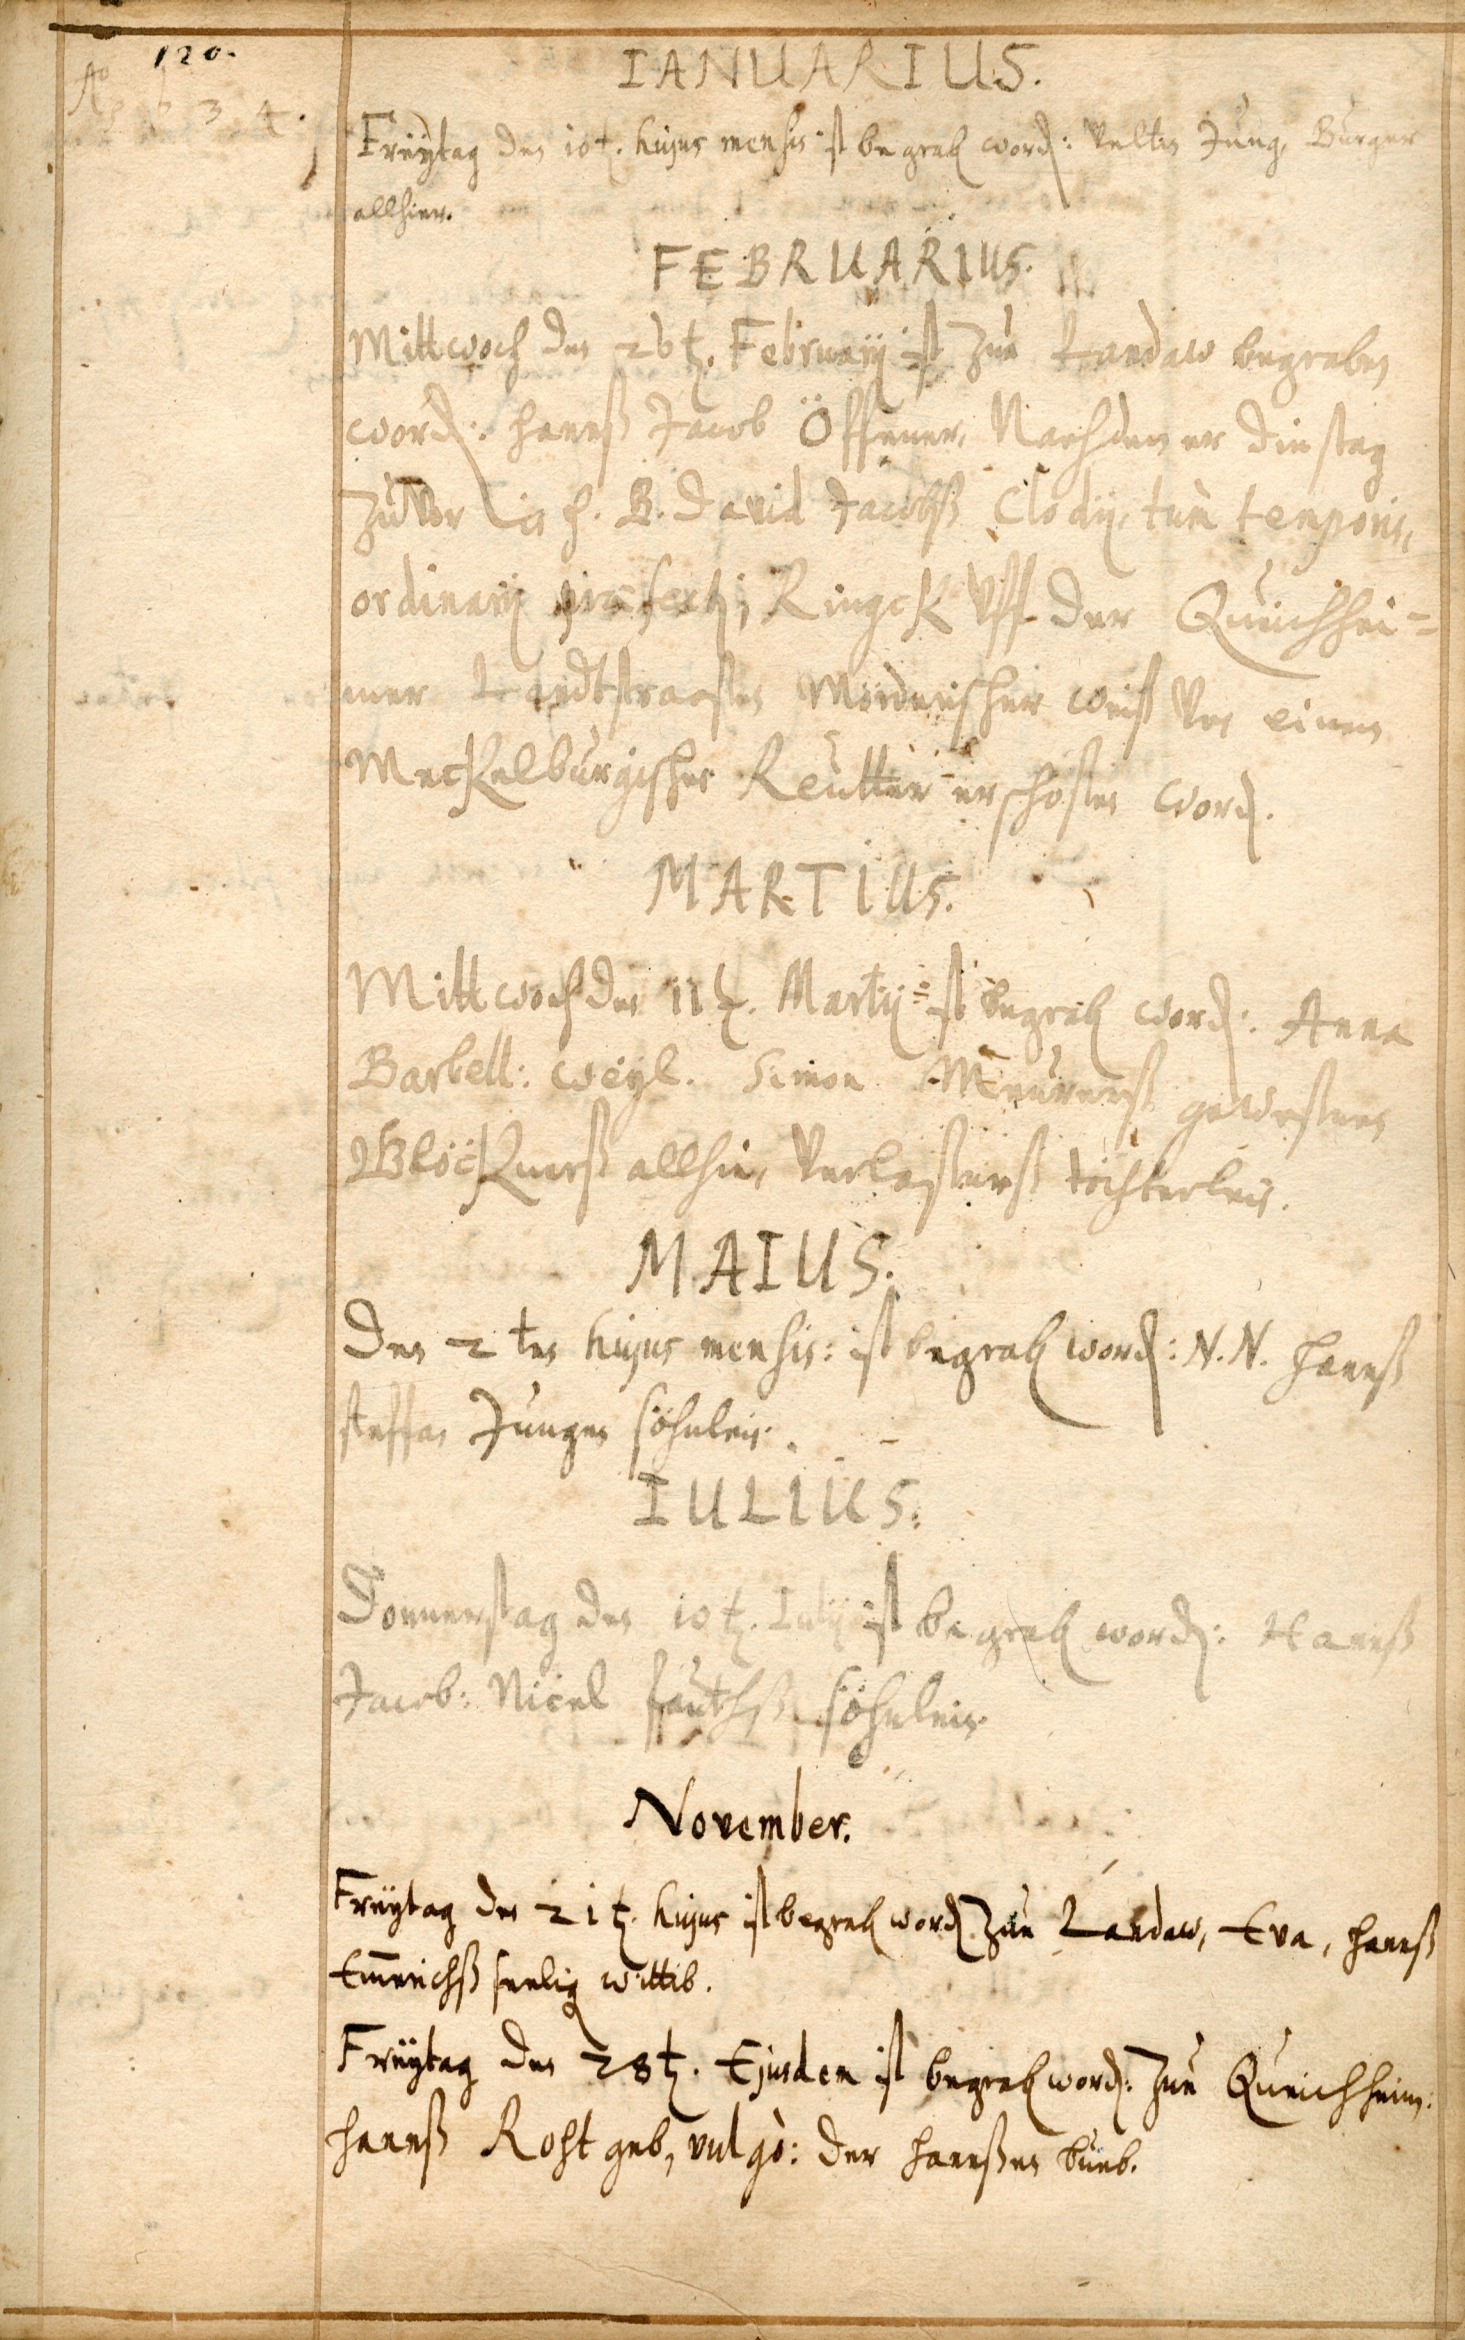 120.
IANUARIUS.
Ao
1634.
Freÿtag den 10t. hujus mensis ist begrab word: Velten Jung, Burger
allhier.
FEBRUARIUS.
Mittwoch den 26t. Februarij ist zue Landaw begraben
word: Hannß Jacob Öffener, Nachdem er Dinstag
zuvor in H. B. David Jacobß Clodij, tùm temporis,
ordinarij Ringck vff der Queichhei=
mer Landtstraasen Mörderischer weiß von einem
Meckelburgischen Reutter erschossen word.
MARTIUS.
Mittwoch den 11t. Martij ist begrab word: Anna
Barbell: weyl. Simon Meurerß gewesenen
Glöcknerß allhie, Verlasenß töchterlein.
MAIUS.
Den 2ten hujus mensis: ist begrab word: N. N. Hannß
steffan Jungen söhnlein.
IULIUS.
Donnerstag den 10t. Iulij ist begrab word: Hannß
Jacob: Nicel fauthß söhnlein.
November.
Freÿtag den 21t. hujus ist begrab word zue Landaw, Eva, Hannß
Em̃erichß seelig wittib.
Freÿtag den 28t. Ejusdem ist begrab word: zue Queichheim:
Hannß Rohtgeb, vulgò: der Hannßen bueb.